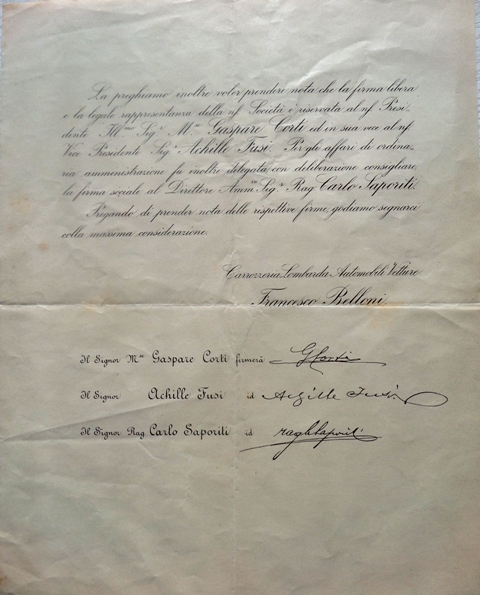 La preghiamo inoltre voler prendere nota che la firma libera
e la legale rappresentanza della nŝ. Società è riservata al nŝ. Presi.
dente Ill.mo Sig.r M.se Gaspare Corti ed in sua vece al nŝ.
Vice Presidente Sig.r Achille Fusi. Per gli affari di ordina,
rea amministrazione fu inoltre delegata, con deliberazione consigliare
la firma sociale al Direttore Amm.vo Sig.r Rag. Carlo Saporiti.
Pregando di prender nota delle rispettive firme, godiamo segnarci
colla massima considerazione.
Carrozzeria Lombarda Automobili Vetture
Francesco Belloni
Il Signor M.se Gaspare Corti firmerà GCorti
Il Signor Achille Fusi id Achille Fusi
Il Signor Rag. Carlo Saporiti id rag CSaporiti